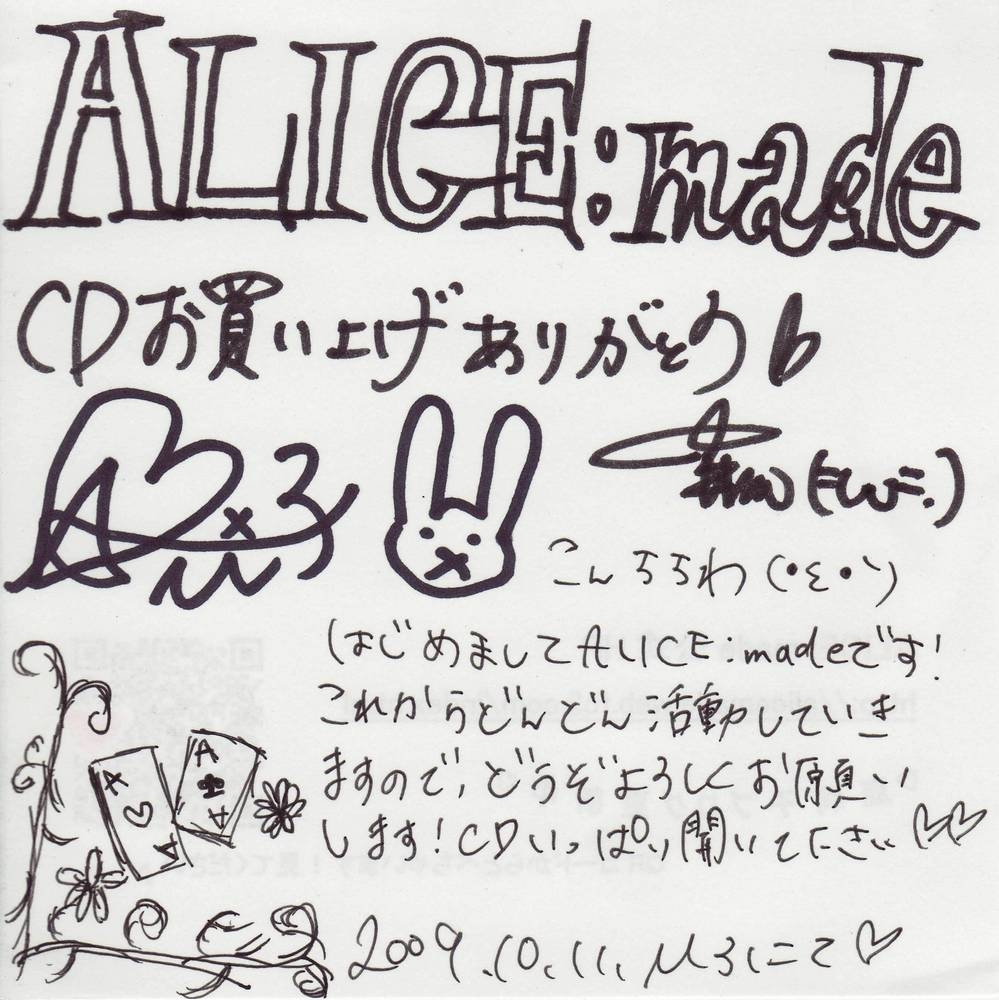 ALICE:made
CDお買い上げありがとうb
こんちちわ (•ε•`)
はじめましてALICE:madeです!
これからどんどん活動していき
ますので、どうぞよろしくお願い
します!CDいっぱい聞いてださい♡♡
A A
A A
2009.10.11. M3にて♡